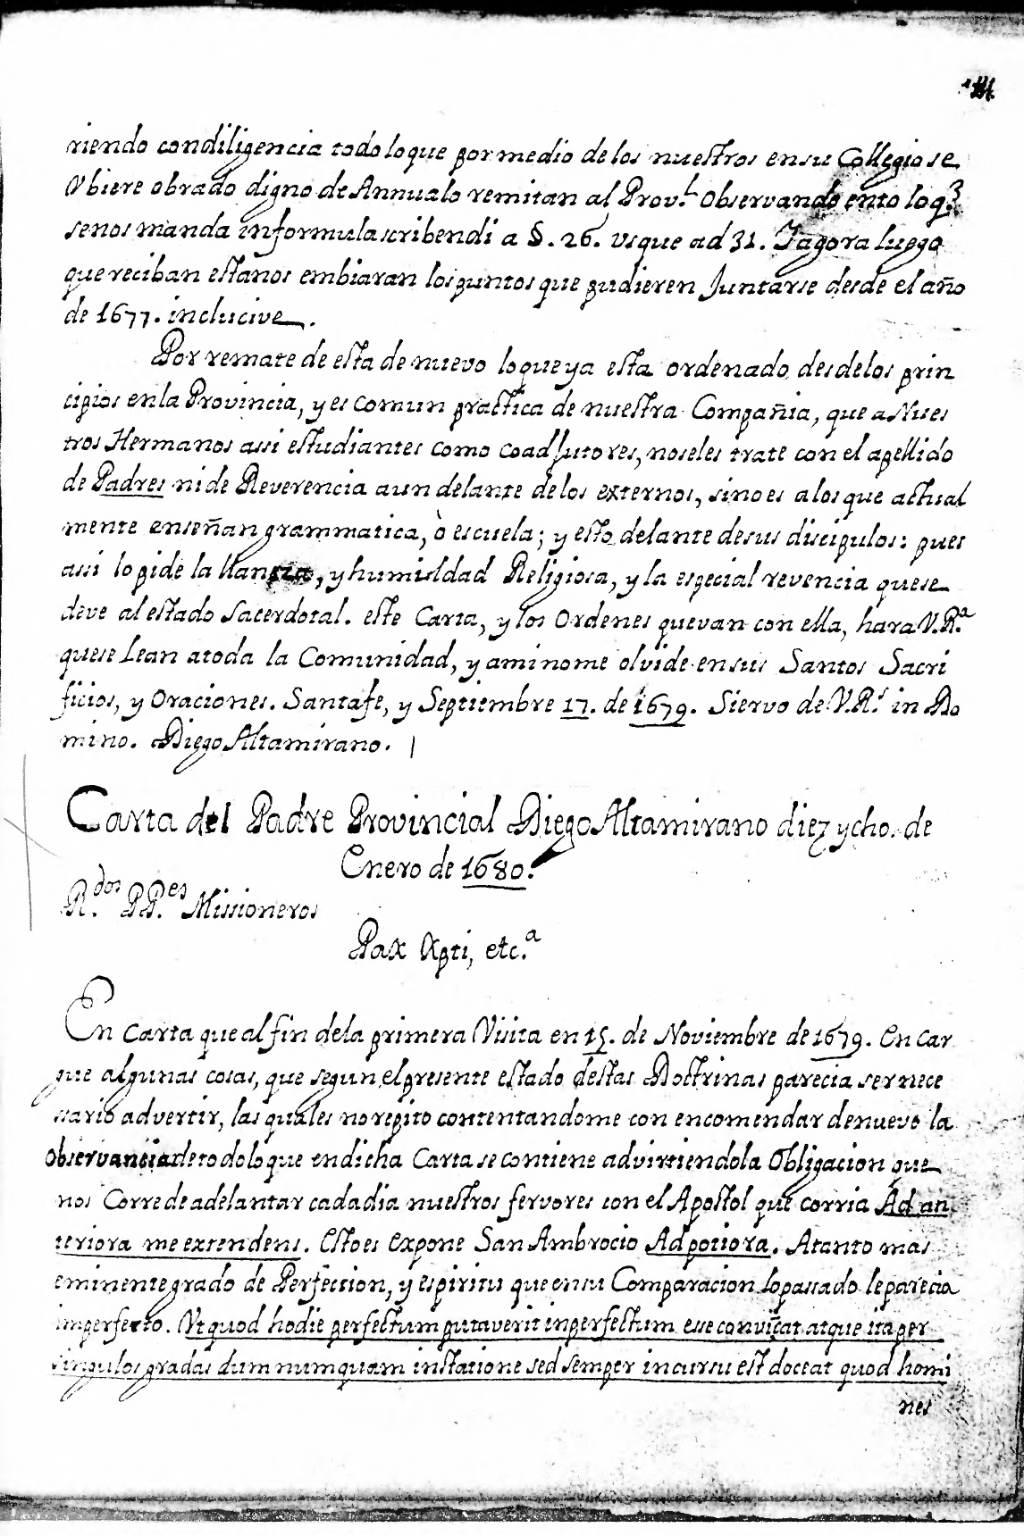 riendo con diligencia todo lo que por medio de los nuestros en su Collegio se
Vbiere obrado digno de Annua lo remitan al Prov.l Observando en to lo q.e
se nos manda in formula scribendi a §. 26. usque ad 31. I agora luego
que reciban estanos embiaran los puntos que pudieren Juntarse desde el año
de 1677. inclucive.
Por remate de esta de nuevo lo que ya esta ordenado desde los prin
cipios en la Provincia, y es comun practica de nuestra Compañia, que a Nues
tros Hermanos assi estudiantes como coadJutores, no se les trate con el apellido
de Padres ni de Reverencia aun delante de los externos, sino es a los que actual
mente enseñan grammatica, ò escuela; y esto delante de sus discipulos: pues
assi lo pide la llaneza, y humildad Religiosa, y la especial revencia que se
deve al estado Sacerdotal. este Carta, y los Ordenes que van con ella, hara V.R.a
que se Lean a toda la Comunidad, y a mi no me olvide en sus Santos Sacri
ficios, y Oraciones. Santafe, y Septiembre 17. de 1679. Siervo de V.R.s in Do
mino. Diego Altamirano.
Carta del Padre Provincial Diego Altamirano diez y cho. de
Enero de 1680.
R.dos PP.es Missioneros
Pax Xpti, etc.a
En Carta que al fin de la primera Visita en 15. de Noviembre de 1679. En car
gue algunas cosas, que segun el presente estado destas Doctrinas parecia ser nece
ssario advertir, las quales no repito contentandome con encomendar de nuevo la
Observancia de todo lo que en dicha Carta se contiene advirtiendo la Obligacion que
nos Corre de adelantar cada dia nuestros fervores con el Apostol que corria Ad an
teriora me extendens. Esto es Expone San Ambrocio Ad potiora. A tanto mas
eminente grado de Perfeccion, y espiritu que en su Comparacion lo passado le parecia
imperfecto. Vt quod hodie perfectum putaverit inperfectum esse conviñcat atque ita per
singulos gradus dum numquam in statione sed semper in cursu est doceat quod homi
nes